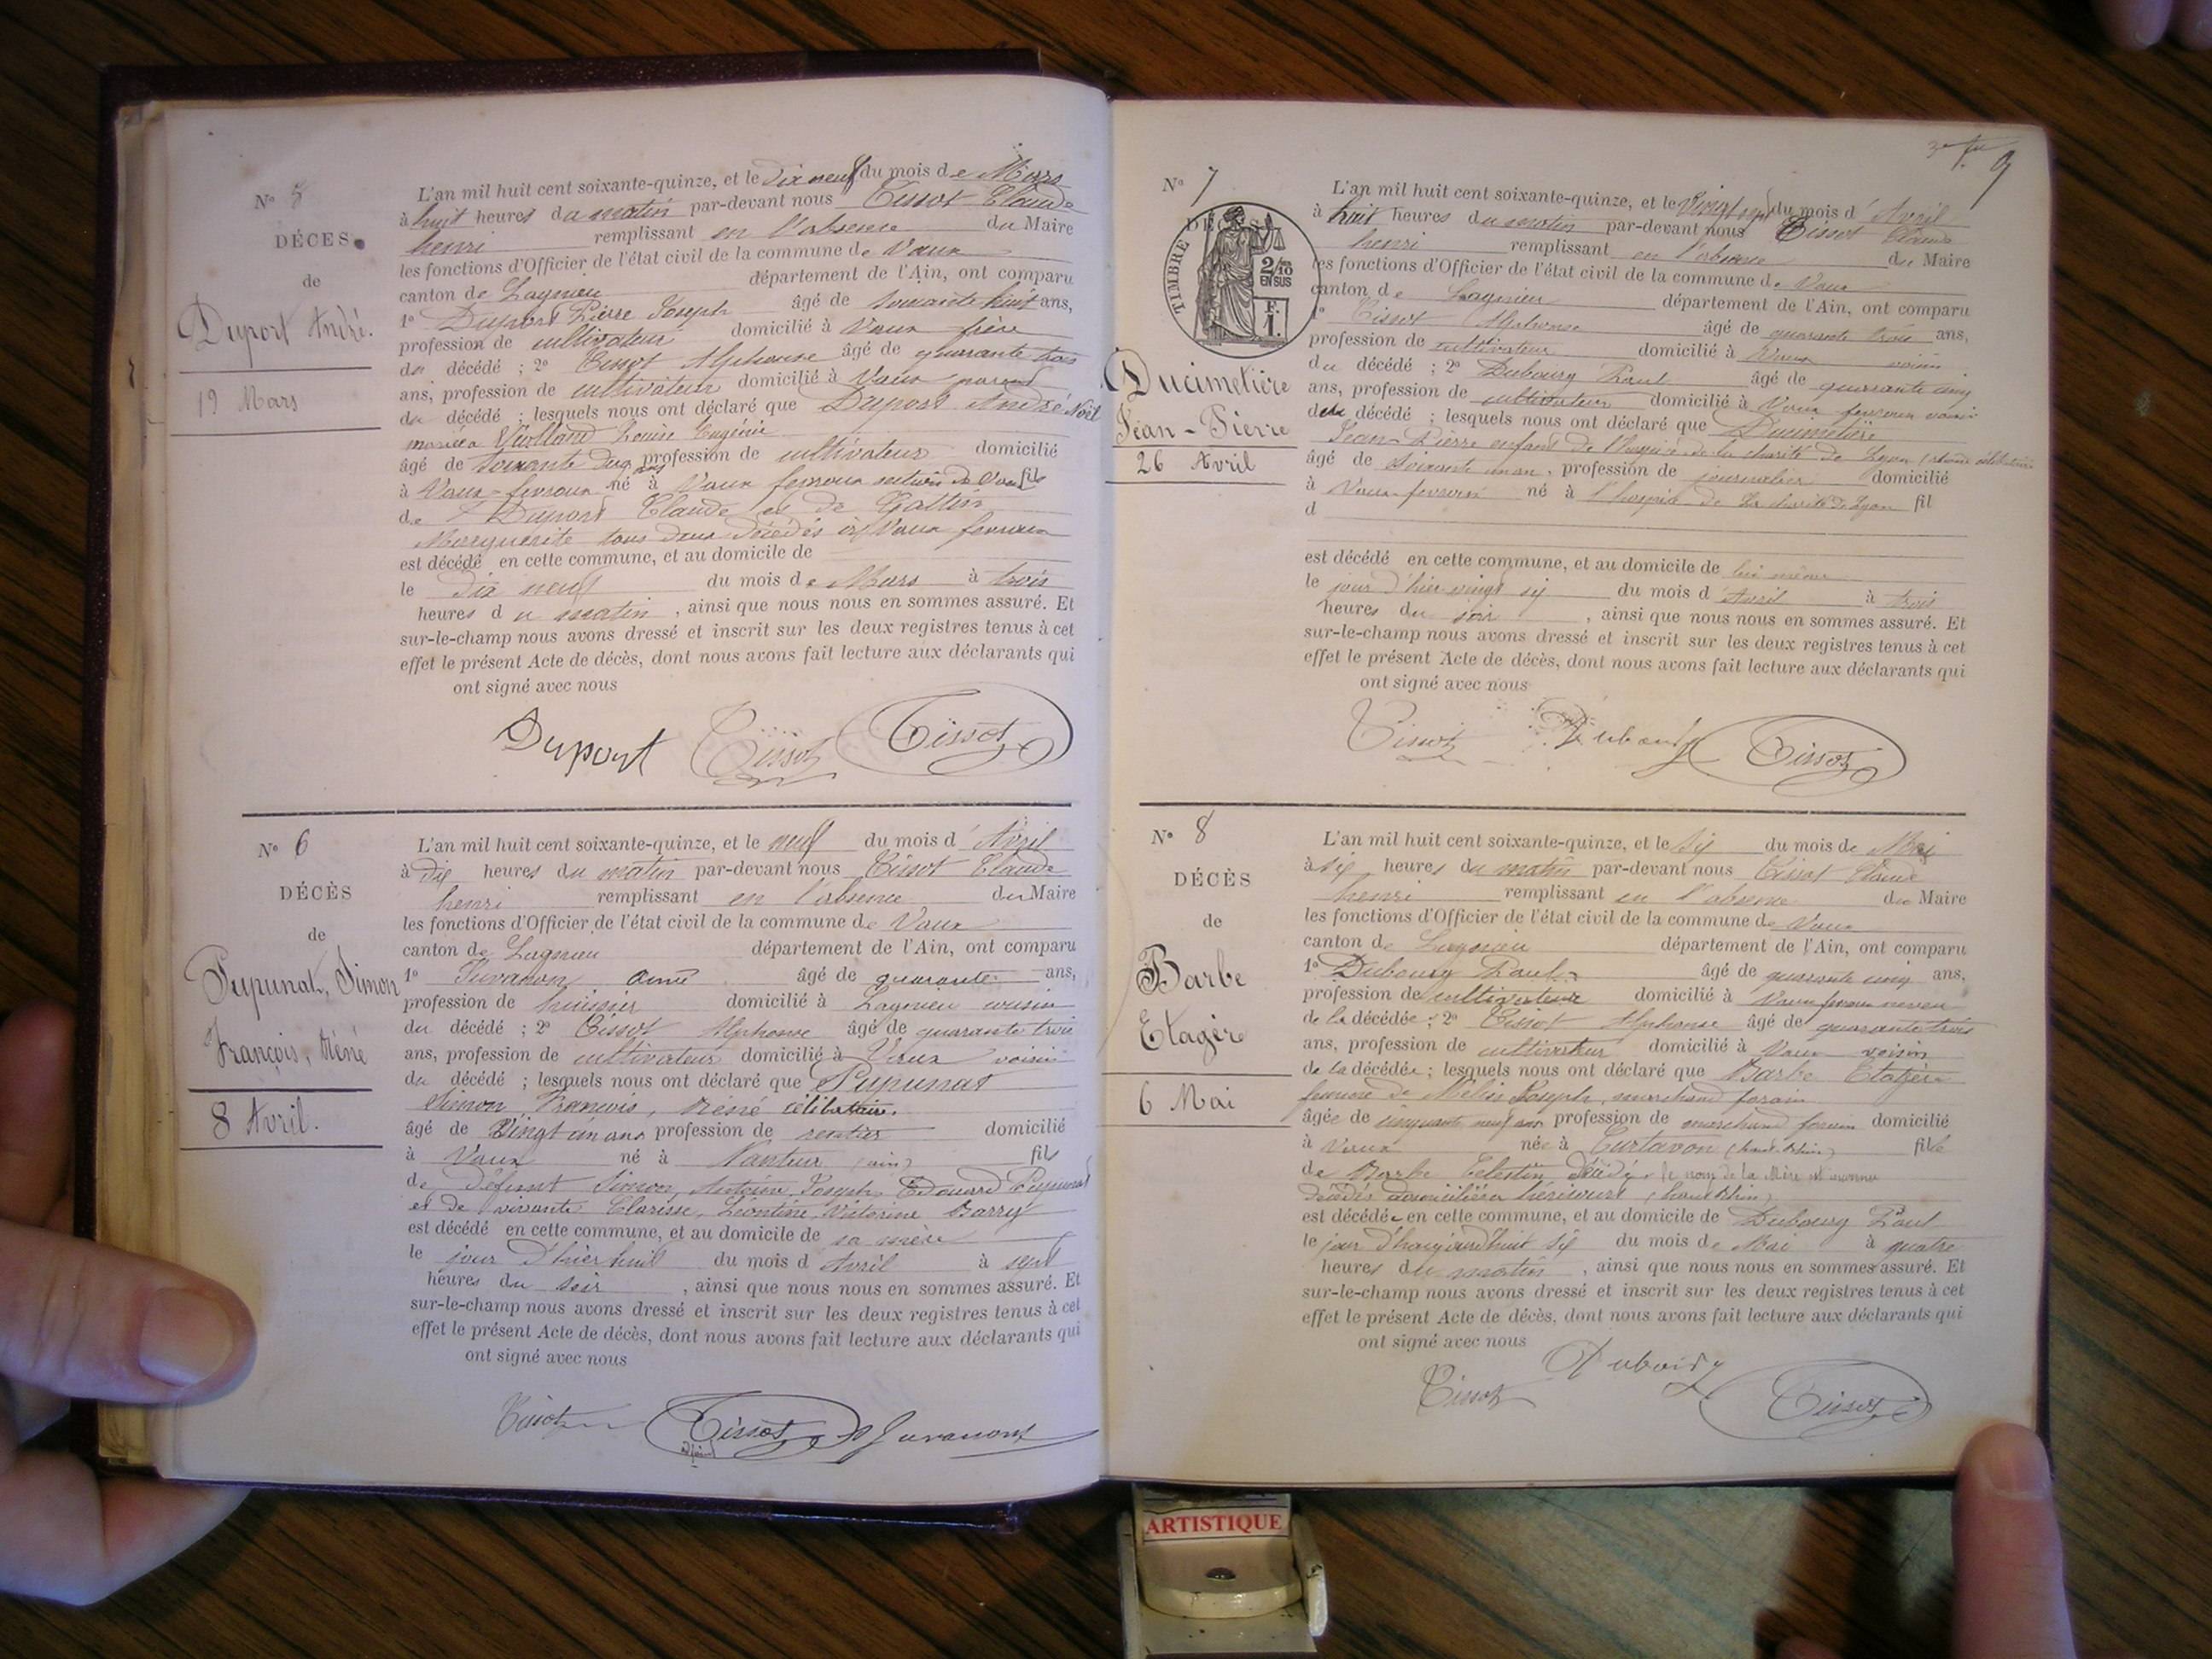 N° 5
DÉCES
de
Duport André.
19 Mars
L'an mil huit cent soixante-quinze, et le dix neuf du mois de Mars
à huit heures du matin par-devant nous Tissot Claude
henri remplissant en l'absence du Maire
les fonctions d'Officier de l'état civil de la commune de Vaux
canton de Lagnieu département de l'Ain, ont comparu
1° Duport Pierre Joseph âgé de soixante huit ans,
profession de cultivateur domicilié à Vaux frère
du décédé ; 2° Tissot Alphonse âgé de quarante trois
ans, profession de cultivateur domicilié à Vaux parent
du décédé ; lesquels nous ont déclaré que Duport André Noël
marié à Violland Louise Eugénie
âgé de soixante deux ans profession de cultivateur domicilié
à Vaux-fevroux né à Vaux fevroux section de Vaux fils
de Duport Claude et de Gallien
Marguerite tous deux décédés à Vaux fevroux
est décédé en cette commune, et au domicile de
le dix neuf du mois de Mars à trois
heures du matin, ainsi que nous nous en sommes assuré. Et
sur-le-champ nous avons dressé et inscrit sur les deux registres tenus à cet
effet le présent Acte de décès, dont nous avons fait lecture aux déclarants qui
ont signé avec nous
Duport Tissot Tissot
N° 6
DÉCÈS
de
Pupunat, Simon
François, Réné
8 Avril.
L'an mil huit cent soixante-quinze, et le neuf du mois d'Avril
à dix heures du matin par-devant nous Tissot Claude
henri remplissant en l'absence du Maire
les fonctions d'Officier de l'état civil de la commune de Vaux
canton de Lagnieu département de l'Ain, ont comparu
1° Juvanon Aimé âgé de quarante ans,
profession de huissier domicilié à Lagnieu cousin
du décédé ; 2° Tissot Alphonse âgé de quarante trois
ans, profession de cultivateur domicilié à Vaux voisin
du décédé ; lesquels nous ont déclaré que Pupunat
Simon, François, Réné célibataire.
âgé de Vingt un ans profession de rentier domicilié
à Vaux né à Nantua (ain) fils
de défunt Simon, Antoine, Joseph Edouard Pupunat
et de vivante Clarisse, Léontine, Victorine Barry
est décédé en cette commune, et au domicile de sa mère
le jour d'hier huit du mois d'Avril à sept
heures du soir, ainsi que nous nous en sommes assuré. Et
sur-le-champ nous avons dressé et inscrit sur les deux registres tenus à cet
effet le présent Acte de décès, dont nous avons fait lecture aux déclarants qui
ont signé avec nous
Tissot Tissot Juvanon
adjoint
9
N° 7
DÉCÈS
TIMBRE
2/10
EN SUS
F.
1.
Ducimetière
Jean-Pierre
26 Avril
L'an mil huit cent soixante-quinze, et le Vingt sept du mois d'Avril
à huit heures du matin par-devant nous Tissot Claude
henri remplissant en l'absence du Maire
les fonctions d'Officier de l'état civil de la commune de Vaux
canton de Lagnieu département de l'Ain, ont comparu
1° Tissot Alphonse âgé de quarante trois ans,
profession de cultivateur domicilié à Vaux voisin
du décédé ; 2° Dubourg Paul âgé de quarante cinq
ans, profession de cultivateur domicilié à Vaux fevroux voisin
du décédé ; lesquels nous ont déclaré que Ducimetière
Jean-Pierre enfant de l'hospice de la charité de Lyon célibataire
âgé de soixante un an, profession de journalier domicilié
à Vaux-fevroux né à l'hospice de la charité de Lyon fil
d
est décédé en cette commune, et au domicile de lui même
le jour d'hier vingt six du mois d'Avril à trois
heures du soir, ainsi que nous nous en sommes assuré. Et
sur-le-champ nous avons dressé et inscrit sur les deux registres tenus à cet
effet le présent Acte de décès, dont nous avons fait lecture aux déclarants qui
ont signé avec nous
Tissot Dubourg Tissot
N° 8
DÉCÈS
de
Barbe
Etagère
6 Mai
L'an mil huit cent soixante-quinze, et le six du mois de Mai
à six heures du matin par-devant nous Tissot Claude
henri remplissant en l'absence du Maire
les fonctions d'Officier de l'état civil de la commune de Vaux
canton de Lagnieu département de l'Ain, ont comparu
1° Dubourg Paul âgé de quarante cinq ans,
profession de cultivateur domicilié à Vaux fevroux neveu
de la décédée ; 2° Tissot Alphonse âgé de quarante trois
ans, profession de cultivateur domicilié à Vaux voisin
de la décédée ; lesquels nous ont déclaré que Barbe Etagère
femme de Joseph, marchand forain
âgée de cinquante neuf ans profession de marchand forain domicilié
à Vaux née à Curtavon (haut Rhin) fille
de Barbe Celestin décédé, le nom de la Mère est inconnu
décédés (haut Rhin)
est décédée en cette commune, et au domicile de Dubourg Paul
le jour d'haujourd'huit six du mois de Mai à quatre
heures du matin, ainsi que nous nous en sommes assuré. Et
sur-le-champ nous avons dressé et inscrit sur les deux registres tenus à cet
effet le présent Acte de décès, dont nous avons fait lecture aux déclarants qui
ont signé avec nous
Tissot Dubourg Tissot
ARTISTIQUE